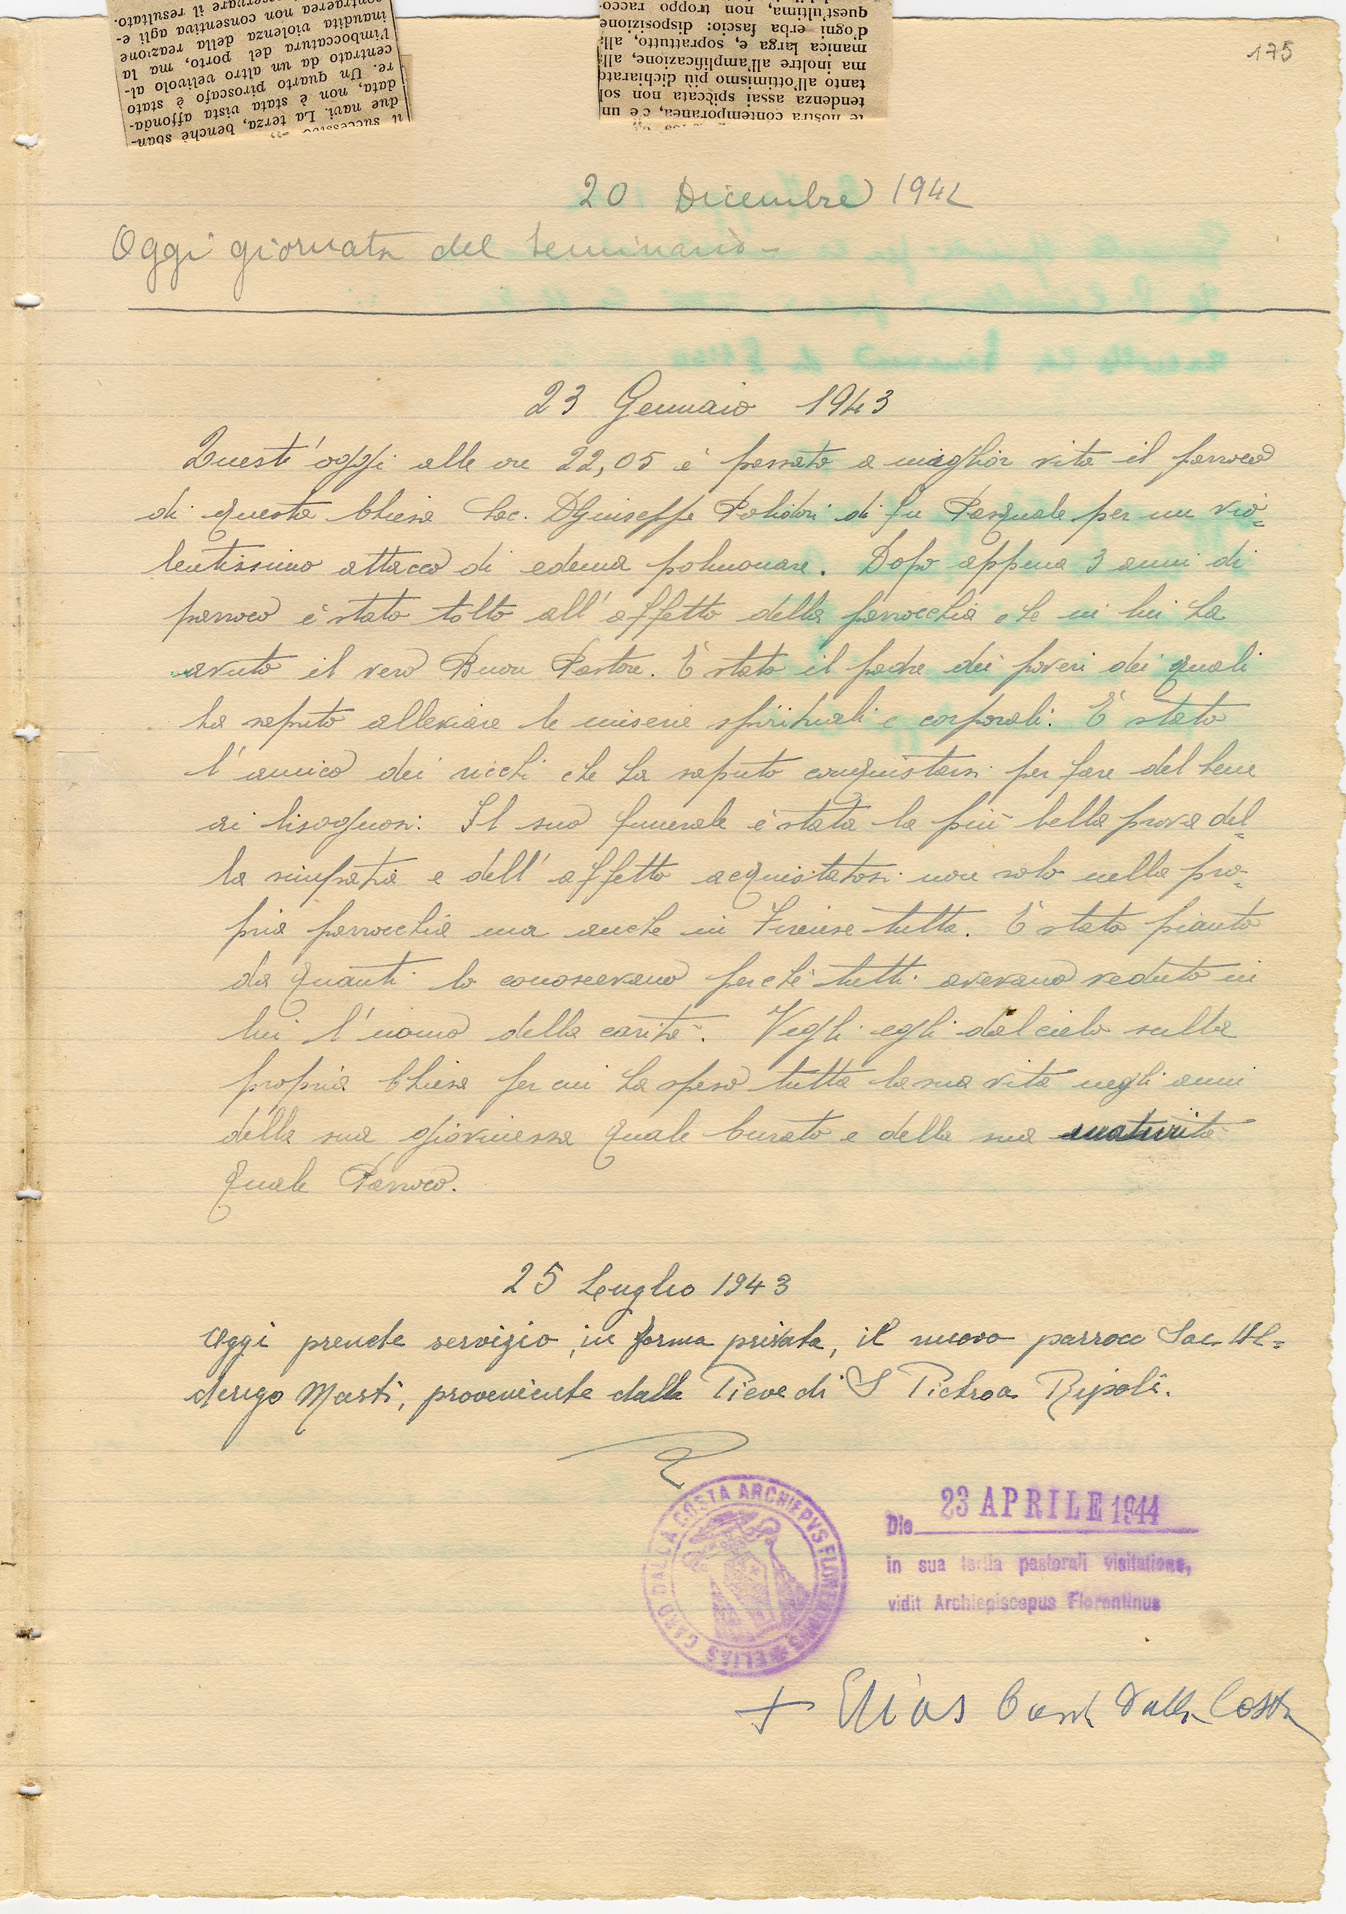 175
il successivo
due navi. La terza, benchè sban-
data, non è stata vista affonda-
re. Un quarto piroscafo è stato
centrato da un altro velivolo al-
l'imboccatura del porto, ma la
inaudita violenza della reazione
contraerea non consentiva agli e-
osservare il resultato.
te nostra contemporanea, c'è un
tendenza assai spiccata non sol
tanto all'ottimismo più dichiarato
ma inoltre all'amplificazione, alla
manica larga e, soprattutto, al
d'ogni erba fascio: disposizione
quest'ultima, non troppo racco-
20 Dicembre 1942
Oggi giornata del Seminario -
23 Gennaio 1943
Quest'oggi alle ore 22,05 è passato a miglior vita il parroco
di questa Chiesa Sac. D Giuseppe Polidori di fu Pasquale per un vio=
lentissimo attacco di edema polmonare. Dopo appena 3 anni di
parroco è stato tolto all'affetto della parrocchia che in lui ha
avuto il vero Buon Pastore. È stato il padre dei poveri dei quali
ha saputo alleviare le miserie spirituali e corporali. È stato
l'amico dei ricchi che ha saputo conquistarsi per fare del bene
ai bisognosi. Il suo funerale è stata la più bella prova del=
la simpatia e dell'affetto acquistatosi non solo nella pro=
pria parrocchia ma anche in Firenze tutta. È stato pianto
da quanti lo conoscevano perchè tutti avevano veduto in
lui l'uomo della carità. Vegli egli dal cielo sulla
propria Chiesa per cui ha speso tutta la sua vita negli anni
della sua giovinezza quale Curato e della sua maturità
quale Parroco.
25 Luglio 1943
Oggi prende servizio, in forma privata, il nuovo parroco Sac. Al=
derigo Masti, proveniente dalla Pieve di S Pietro a Ripoli.
ELIAS CARD DALLA COSTA ARCHIEPVS FLORENTINVS
Die 23 APRILE 1944
in sua tertia pastorali visitatione,
vidit Archiepiscopus Florentinus
+ Elias Card. Dalla Costa